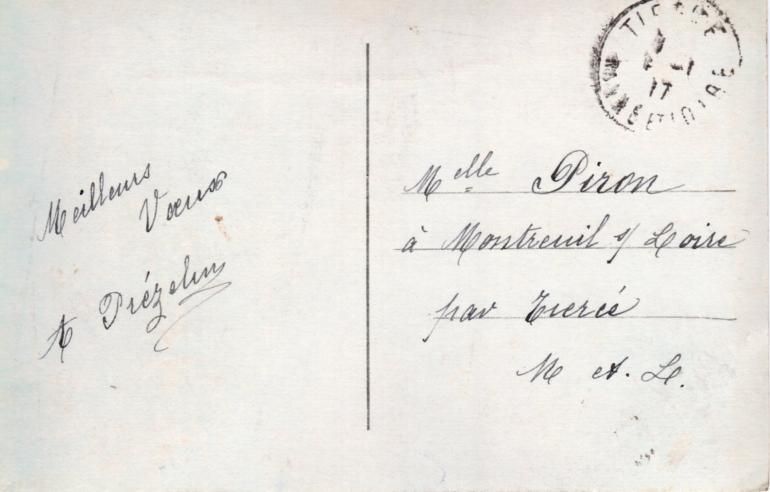 Meilleurs
Vœux
A Prézelin
TIERCÉ
-1
17
MAINE ET LOIRE
Melle Piron
à Montreuil s/ Loire
par Tiercé
M et. L.